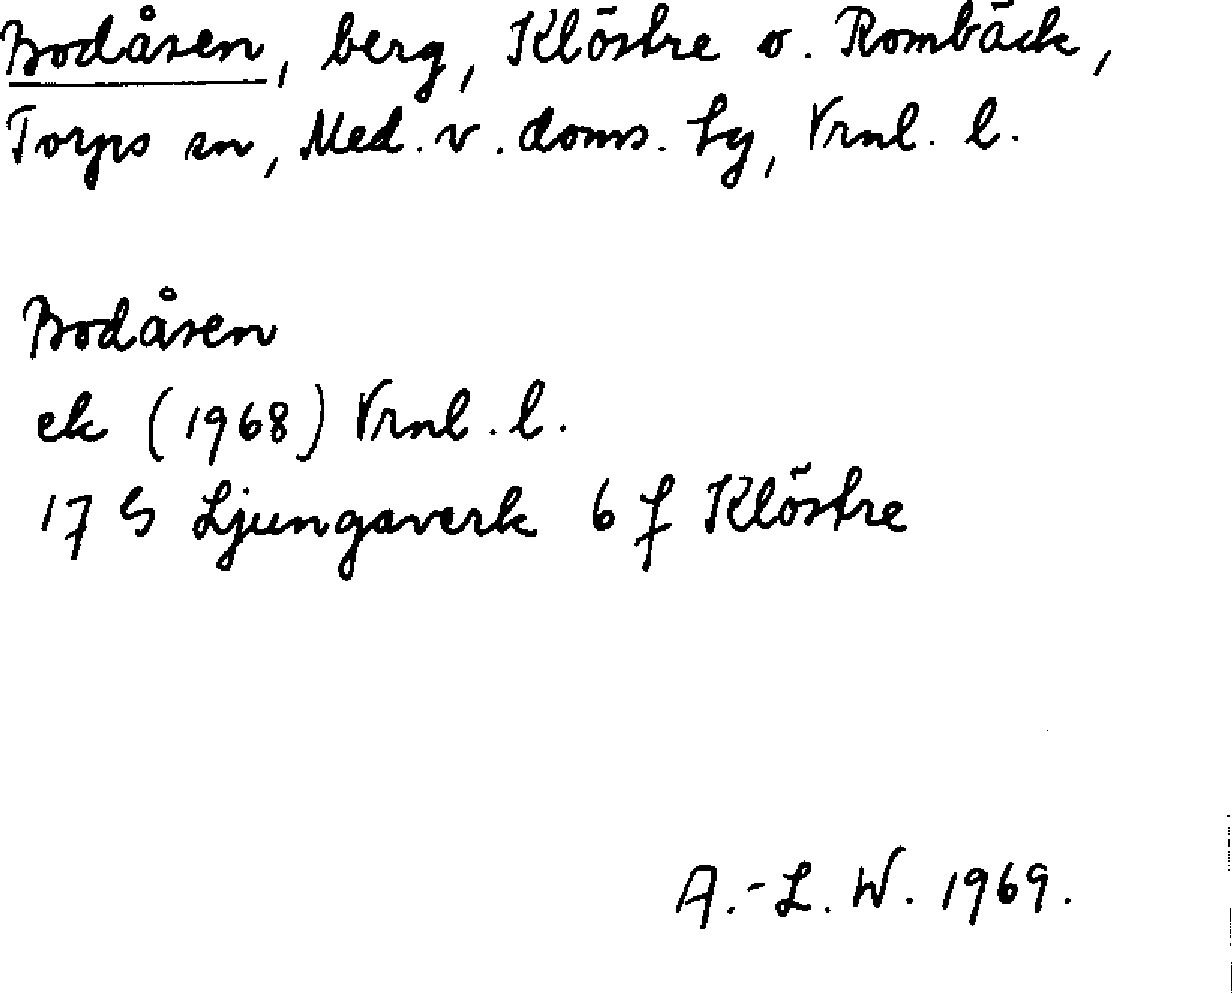 Bodåsen, berg, Klöstre o. Rombäck,
Torps sn, Med. v. doms. tg, Vrnl. l.
Bodåsen
ek (1968) Vrnl. l.
17 G Ljungaverk 6 f Klöstre
A.-L. W. 1969.